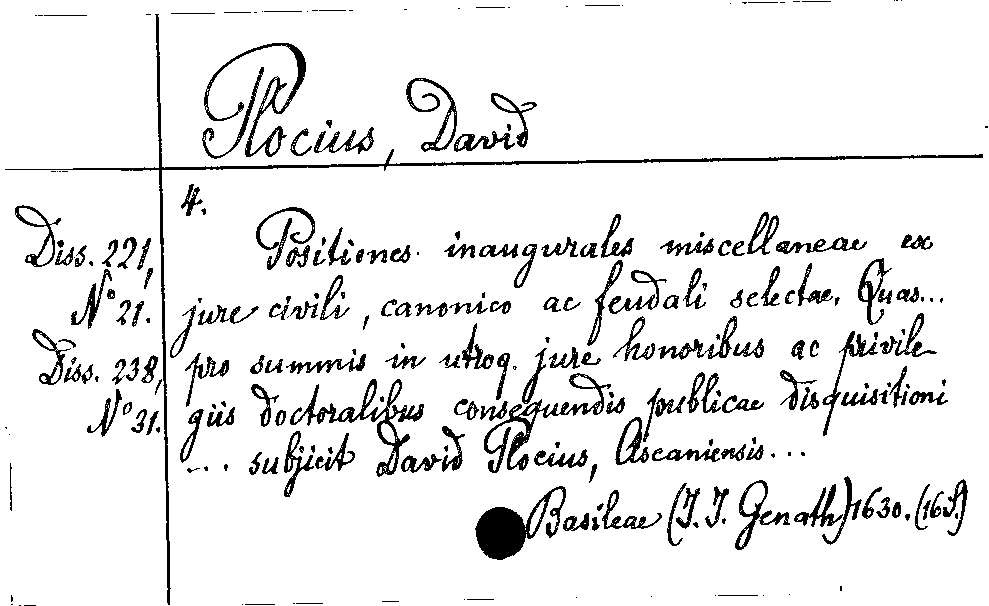 Plocius, David
4.
Diss. 221, Positiones inaugurales miscellaneae ex
N° 21. jure civili, canonico ac feudali selectae. Quas...
Diss. 238, pro summis in utroq. jure honoribus ac privile
N° 31. giis doctoralibus consequendis publicae disquisitioni
... subjicit David Plocius, Ascaniensis...
Basileae (J. J. Genath) 1630. (16 S.)